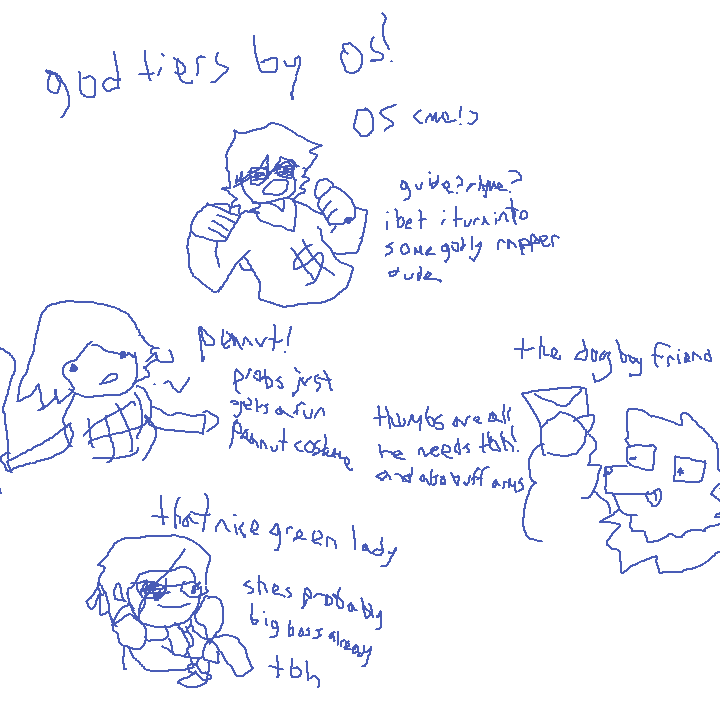 god tiers by os!
OS <me!>
guide? rhyme?
i bet i turn into
some godly rapper
dude
peanut!
probs just
gets a fun
peanut costume
the dog boyfriend
thumbs are all
he needs tbh!
and also buff arms
that nice green lady
shes probably
big boss already
tbh